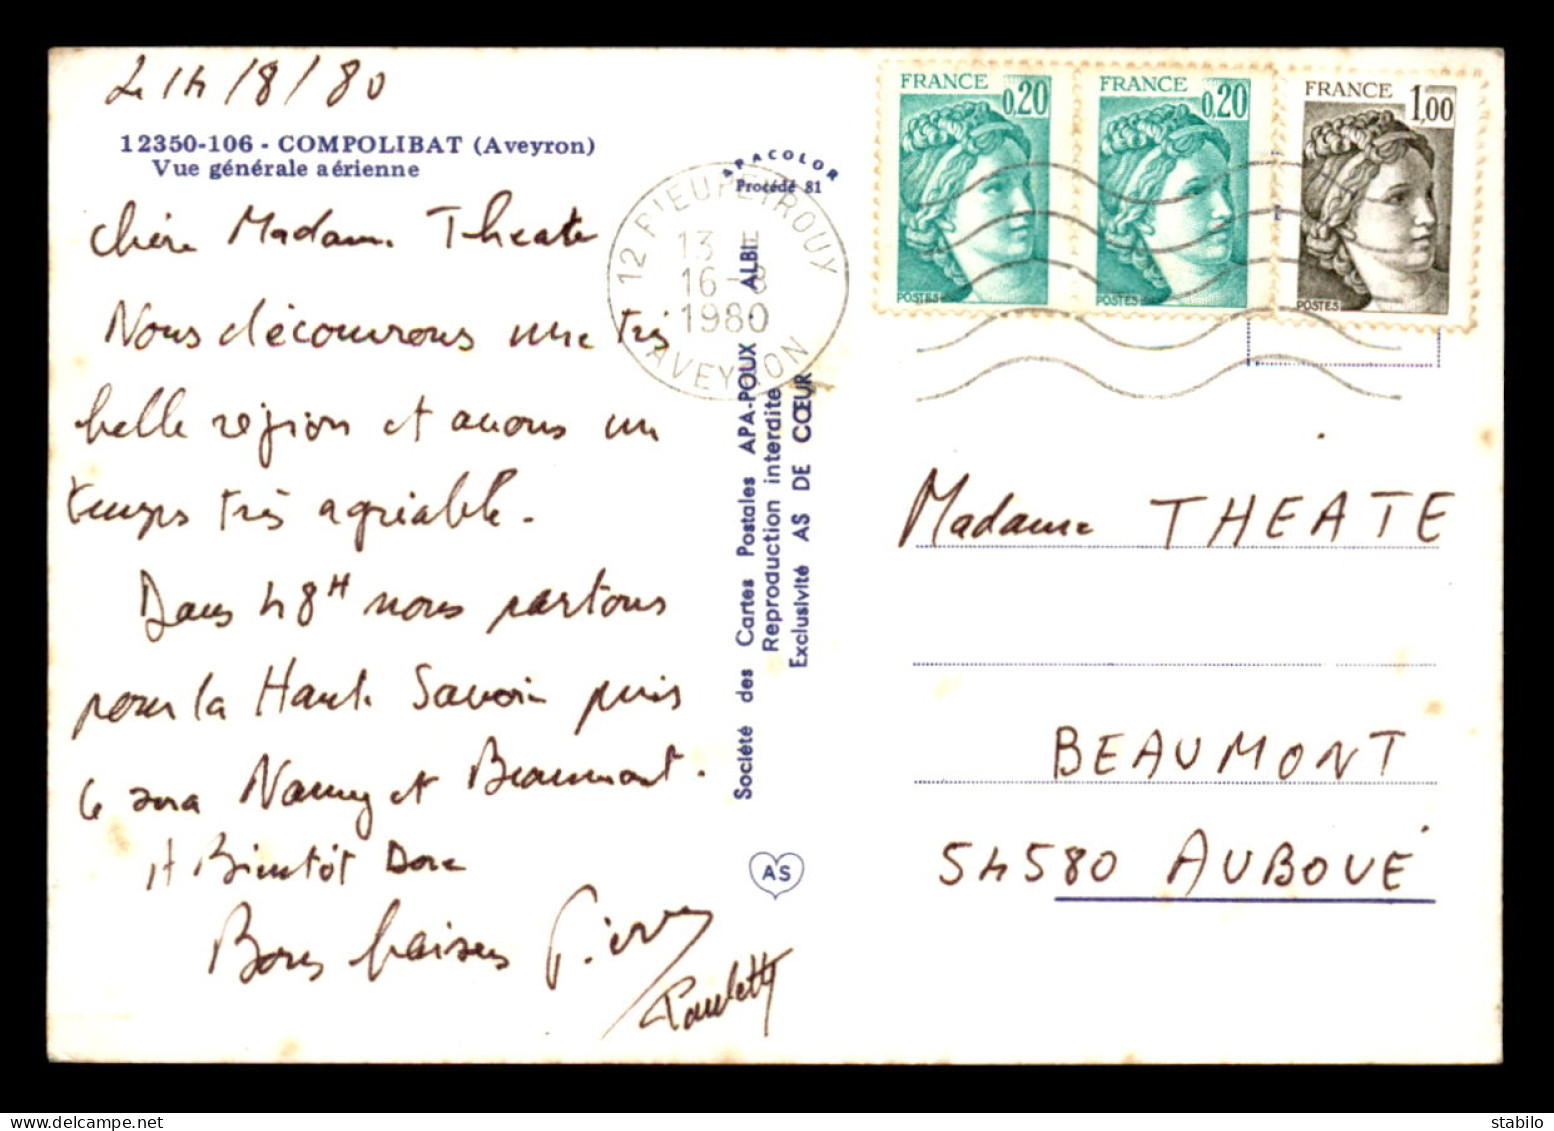 Le 14/8/80
12350-106 - COMPOLIBAT (Aveyron)
Vue générale aérienne
Chère Madame Theate
Nous découvrons une très
belle région et avons un
temps très agréable.
Dans 48H nous partons
pour la Haute Savoie puis
ce sera Nancy et Beaumont.
A Bientôt Donc
Bons baisers Pierre
Paulette
APACOLOR
Procédé 81
12 RIEUPEYROUX
13 H
16-8
1980
AVEYRON
Société des Cartes Postales APA-POUX - ALBI
Reproduction interdite
Exclusivité AS DE CŒUR
AS
FRANCE
0,20
POSTES
FRANCE
0,20
POSTES
FRANCE
1,00
POSTES
Madame THEATE
BEAUMONT
54580 AUBOUÉ
stabilo